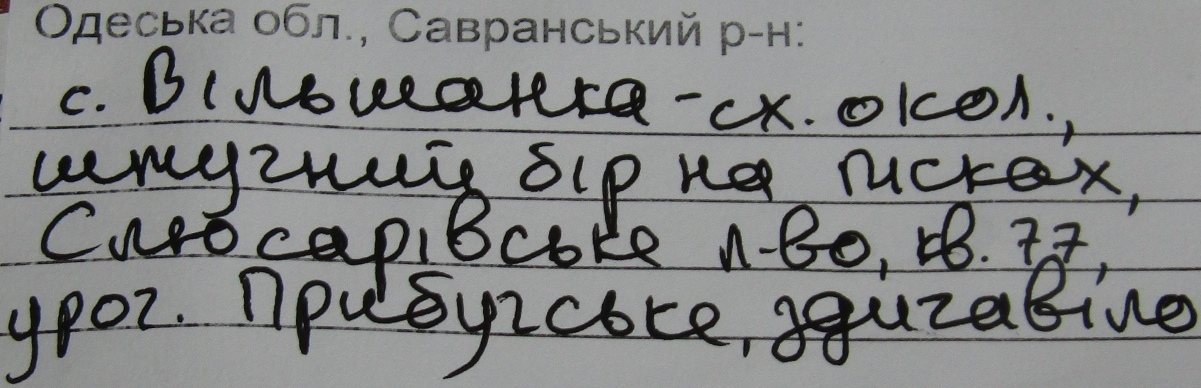 Одеська обл., Савранський р-н:
с. Вільшанка - сх. окол.,
штучний бір на пісках,
Слюсарівське л-во, кв. 77,
уроч. Прибугське, здичавіло